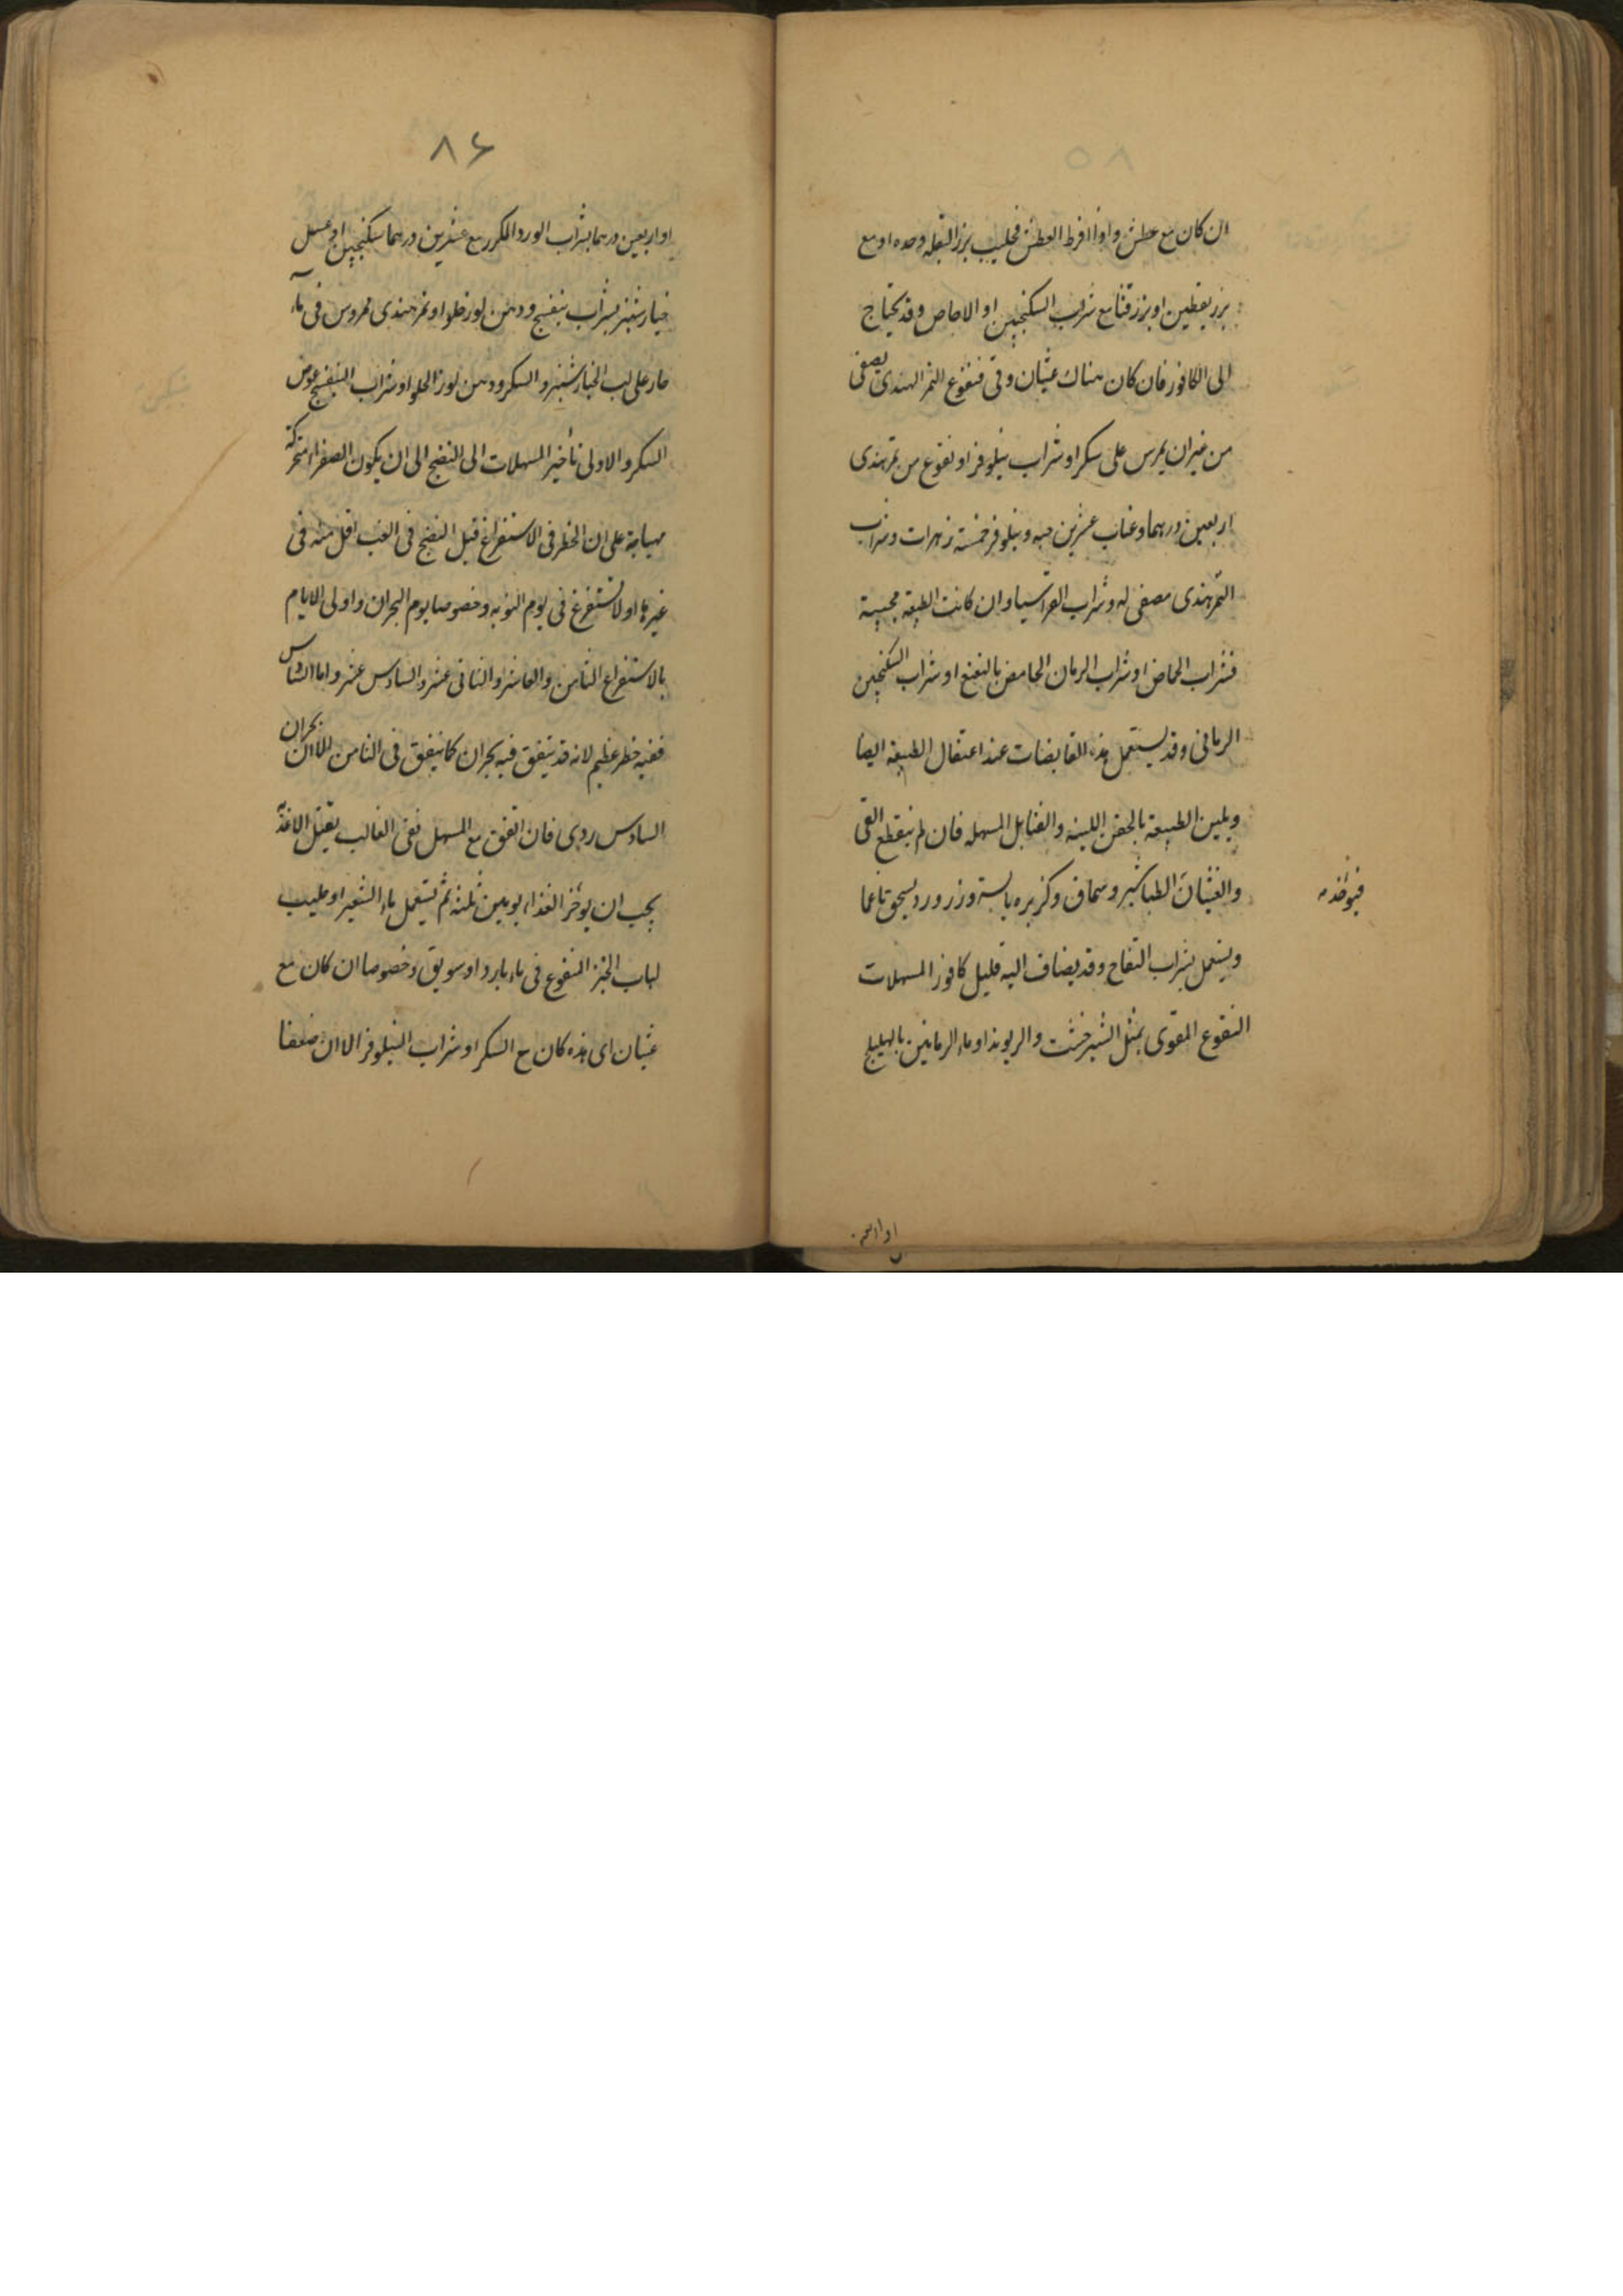 ان كان مع عطش واذا افرط العطش فحليب بزر البقله وحده او مع
بزر يقطين او بزر قثا مع شراب السكنجبين او الاجاص وقد يحتاج
الى الكافور فان كان هناك غثيان وقى فنقوع التمر الهندى يصفى
من غير ان يمرس على سكر او شراب نيلوفر او نقوع من تمرهندى
اربعين درهما وعناب عشرين حبه ونيلوفر خمسة زهرات وشراب
التمرهندى مصفى له وشراب القراسيا وان كانت الطبيعة مجيبة
فشراب الحماض او شراب الرمان الحامض بالنعنع او شراب السكنجبين
الرمانى وقد يستعمل هذه القابضات عند اعتقال الطبيعة ايضا
ويلين الطبيعة بالحقن اللينه والفتايل المسهله فان لم ينقطع القى
والغثيان الطباشير وسماق وكزبره يابسة وزر ورد يسحق ناعما
فيوخذ
ويستعمل بشراب التفاح وقد يضاف اليه قليل كافور المسهلات
النقوع المقوى بمثل الشيرخشت والريوند او ماء الرمانين بالهليلج
۸۶
او اربعين درهما بشراب الورد المكرر مع عشرين درهما سكنجبين او عسل
خيارشنبر بشراب بنفسج ودهن لوز حلو او تمرهندى ممروس فى ماء
حار على لب الخيارشنبر والسكر ودهن لوز الحلو او شراب البنفسج عوض
السكر والاولى تأخير المسهلات الى النضج الى ان يكون الصفراء متحركة
مهياجة على ان الخطر فى الاستفراغ قبل النضج فى الغب اقل منه فى
غيرها ولا تستفرغ فى يوم النوبه وخصوصا يوم البحران واولى الايام
بالاستفراغ الثامن والعاشر والثانى عشر والسادس عشر واما السادس
ففيه خطر عظيم لانه قد يتفق فيه بحران كما يتفق فى الثامن الا ان بحران
السادس ردى فان اتفق مع المسهل ففى الغالب يقتل الاغذية
يجب ان يوخر الغذاء يومين ثلثه ثم يستعمل ماء الشعير او حليب
لباب الخبز المنقوع فى ماء بارد او سويق وخصوصا ان كان مع
غثيان اى هذه كان مع السكر او شراب النيلوفر الا ان ضعفا